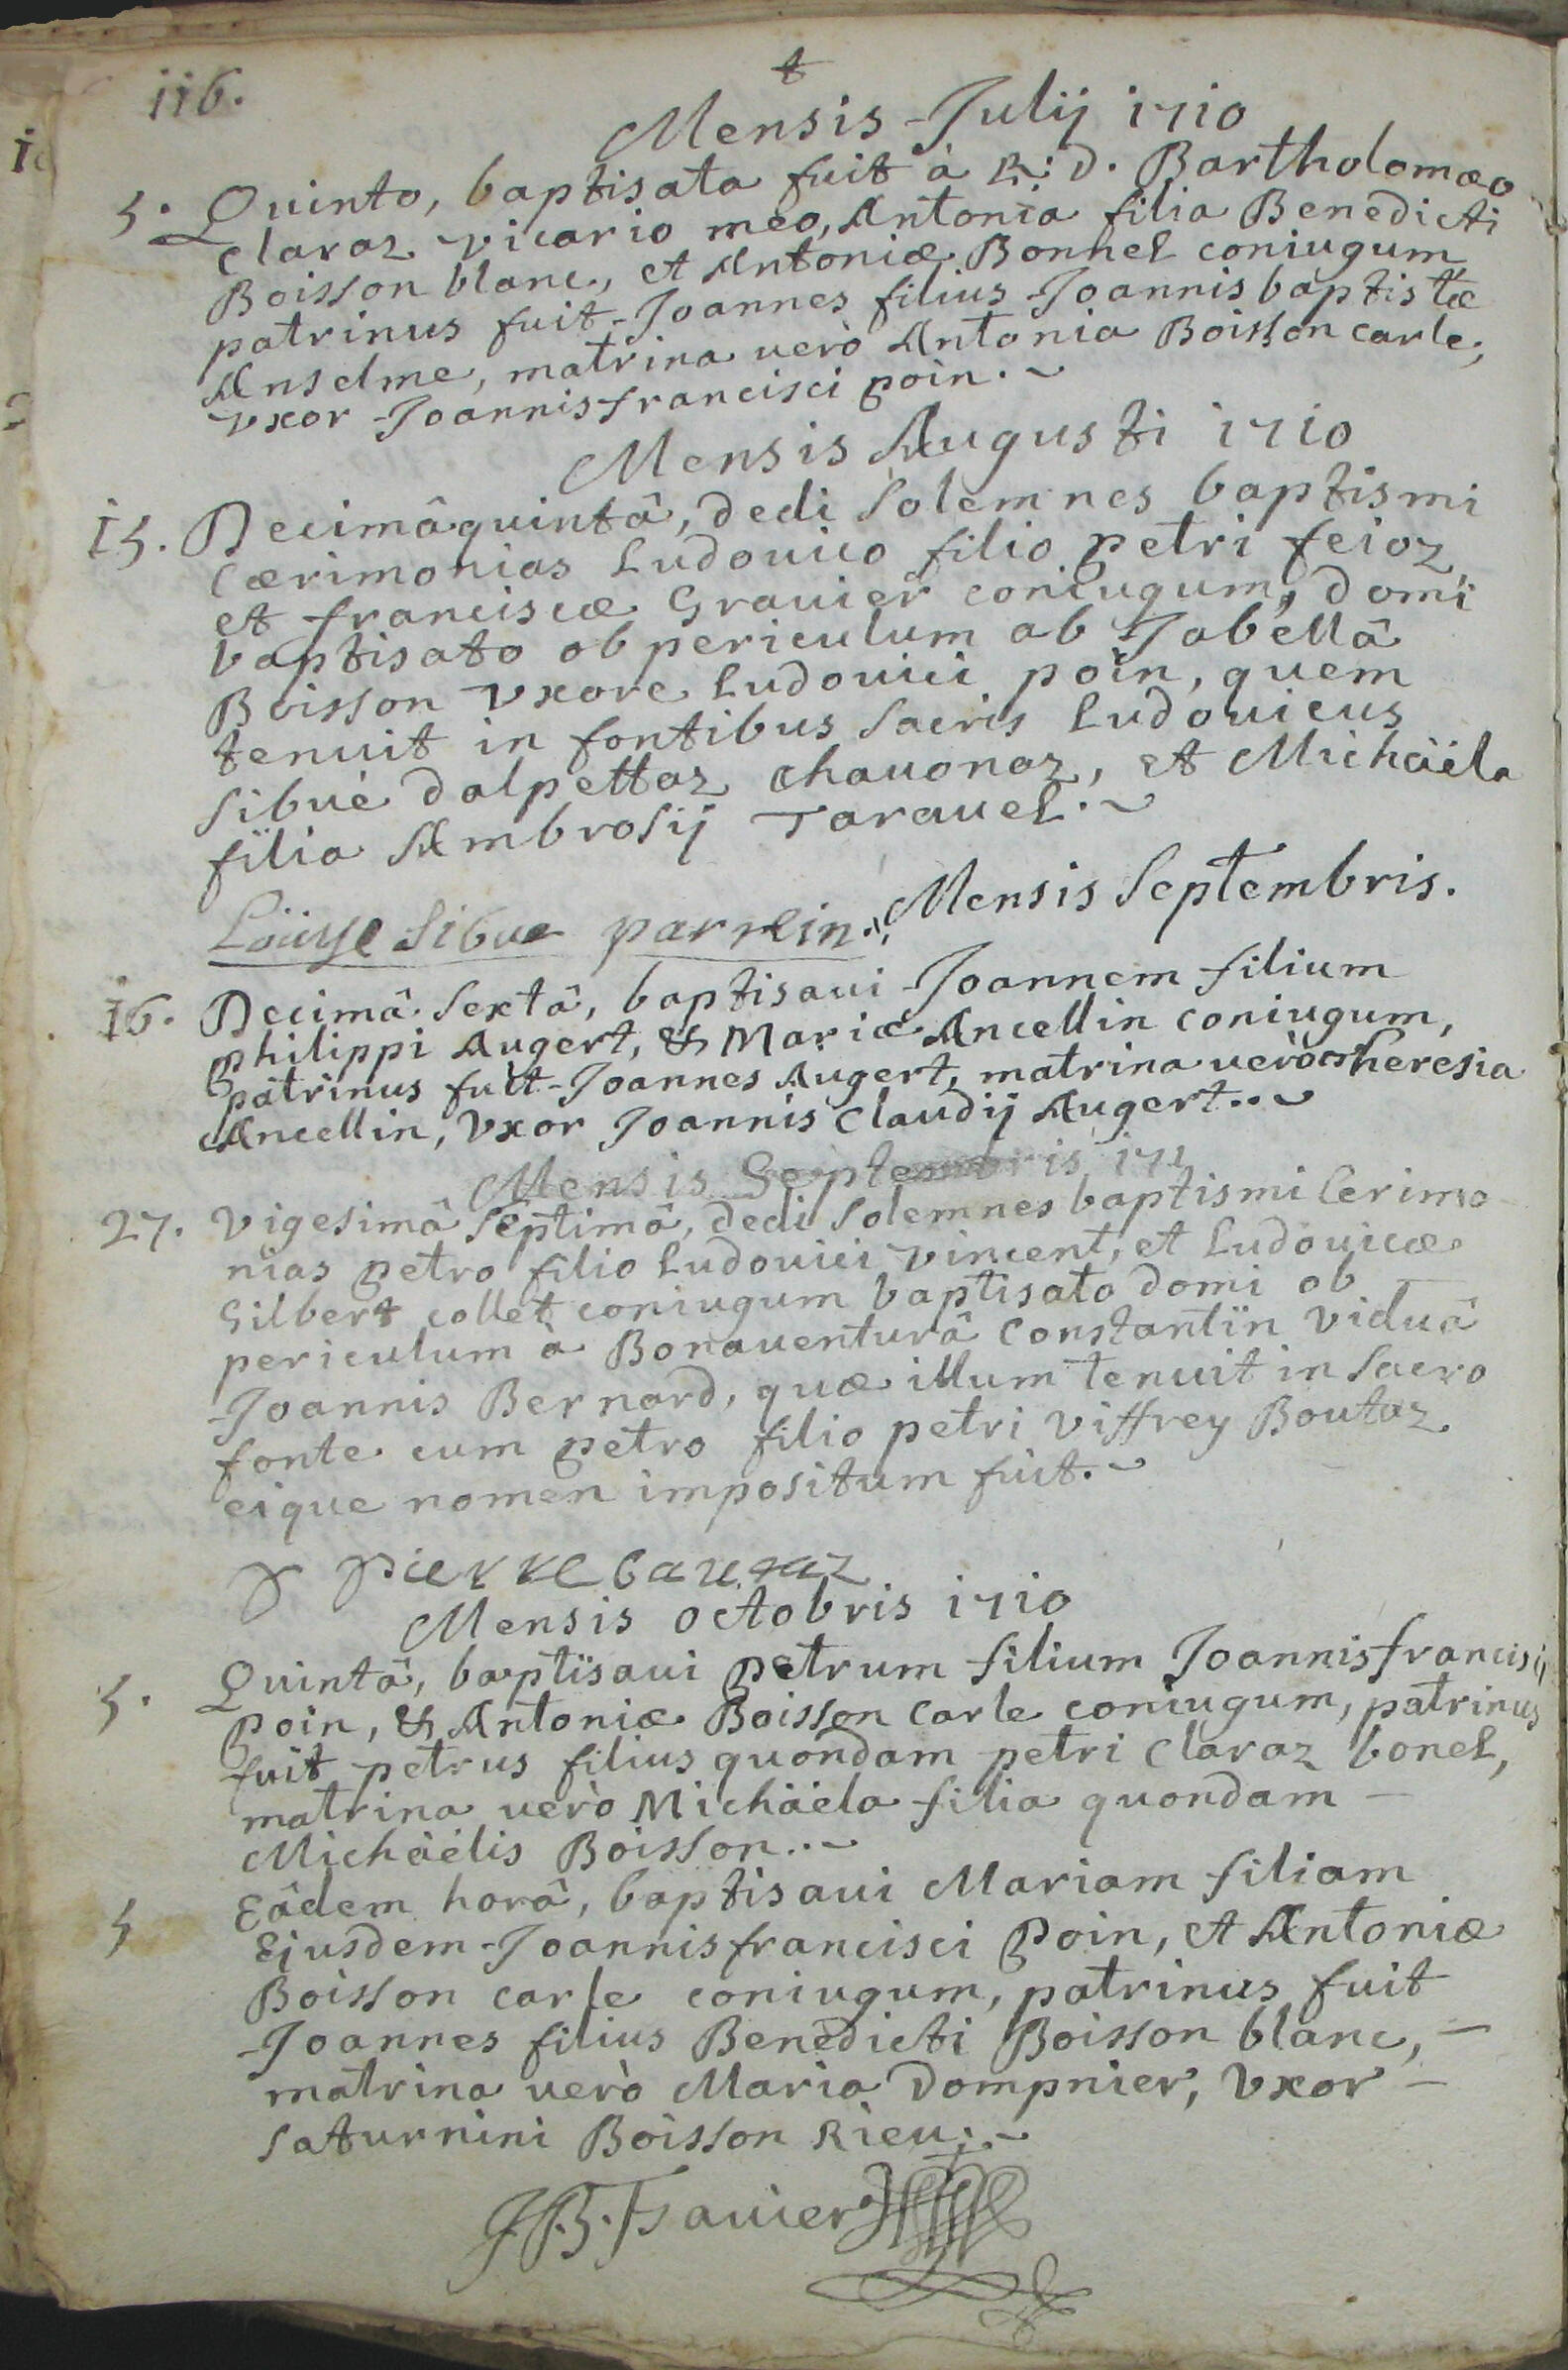 116.
Mensis Julij 1710
5. Quinto, baptisata fuit à R: D. Bartholomæo
Claraz vicario meo, Antonia filia Benedicti
Boisson blanc, et Antoniæ Bonnel coniugum
patrinus fuit Joannes filius Joannis baptistæ
Anselme, matrina uerò Antonia Boisson carle,
vxor Joannisfrancisci poin.
Mensis Augusti 1710
15. Decimâquintâ, dedi Solemnes baptismi
Cærimonias Ludouico filio petri feioz
et franciscæ Grauier coniugum, domi
baptisato ob periculum ab Jabellâ
Boisson vxore Ludouici poin, quem
tenuit in fontibus Sacris Ludouicus
Sibué dalpettaz chauonaz, et Michäéla
filia Ambrosij Tarauel.
Loüyse Sibue parrein. Mensis Septembris.
16. Decimâ Sextâ, baptisaui Joannem filium
philippi Augert, & Mariæ Ancellin coniugum,
patrinus fuit Joannes Augert, matrina uerò Theresia
Ancellin, vxor Joannis Claudij Augert..
Mensis Septembris 171
27. Vigesimâ Septimâ, dedi Solemnes baptismi Cerimo
nias petro filio Ludouici vincent, et Ludouicæ
Gilbert collet coniugum baptisato domi ob
periculum à Bonauenturâ Constantin viduâ
Joannis Bernard, quæ illum tenuit in Sacro
fonte cum petro filio petri viffrey Boutaz
eique nomen impositum fuit.
pierre
Mensis octobris 1710
5. Quintâ, baptisaui petrum filium Joannisfrancisci
poin, & Antoniæ Boisson Carle coniugum, patrinus
fuit petrus filius quondam petri Claraz bonel,
matrina uerò Michäéla filia quondam
Michäélis Boisson..
5 Eâdem horâ, baptisaui Mariam filiam
Ejusdem Joannisfrancisci poin, et Antoniæ
Boisson carle coniugum, patrinus fuit
Joannes filius Benedicti Boisson blanc,
matrina uerò Maria Dompnier, vxor
Saturnini Boisson Rieu.